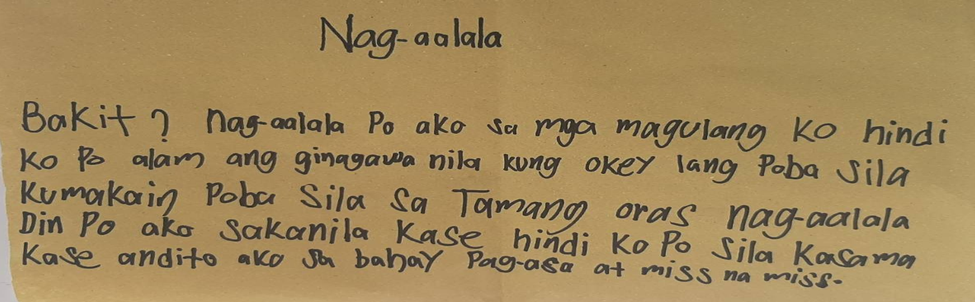 Nag-aalala
Bakit? nag-aalala Po ako sa mga magulang ko hindi
Ko Po alam ang ginagawa nila kung okey lang Poba sila
Kumakain Poba Sila Sa Tamang oras nag-aalala
Din Po ako sakanila Kase hindi Ko Po Sila Kasama
Kase andito ako sa bahay Pag-asa at miss na miss.